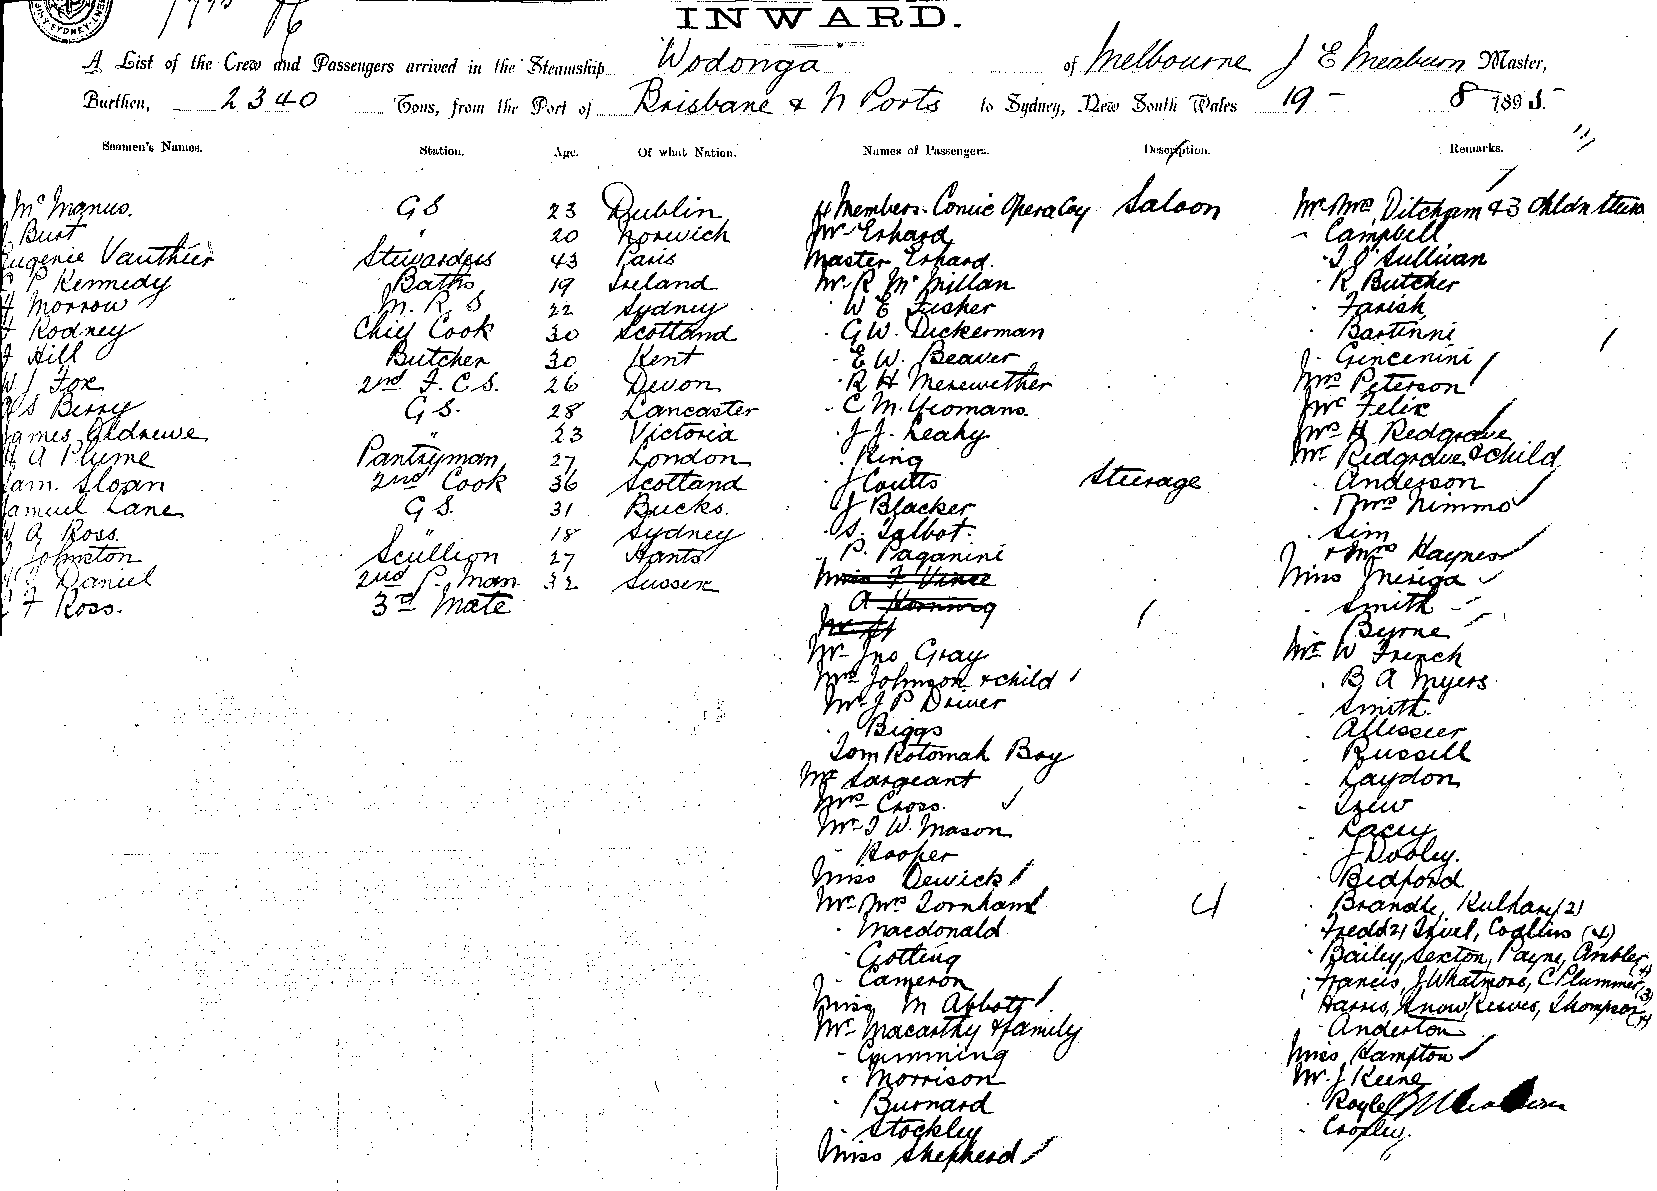 INWARD.
A List of the Crew and Passengers arrived in the Steamship Wodonga of Melbourne J E Meaburn Master,
Burthen, 2340 Tons, from the Port of Brisbane & N Ports to Sydney, New South Wales 19 - 8 1895
Seamen's Names. Station. Age. Of what Nation. Names of Passengers. Description. Remarks.
McManus. G S 23 Dublin 4 Members Comic Opera Coy Saloon Mr Mrs Ditcham & 3 Chldn
Burt " 20 Norwich Mr Erhard - Campbell
Eugenie Vauthier Stewardess 43 Paris Master Erhard. J O'Sullivan
P Kennedy Baths 19 Ireland Mr R McMillan R Butcher
Morrow M. R. S 22 Sydney W E Fisher Farish
Rodney Chief Cook 30 Scotland G W. Dickerman Bartinni
Hill Butcher 30 Kent E W. Beaver Gincenini
W J Fox 2nd F. C. S. 26 Devon R H Merewether Mrs Peterson
S Berry G S. 28 Lancaster C M. Yeomans. Mr Felix
James " 23 Victoria J J. Leahy Mrs H Redgrave
A Plume Pantryman 27 London King Mr Redgrave & child
Sloan 2nd Cook 36 Scotland J Coutts Steerage Anderson
Samuel Lane G S. 31 Bucks. J Blacker Mrs Nimmo
A Ross. " 18 Sydney S. Talbot. Sim
Johnston Scullion 27 Hants P. Paganini & Mrs Haynes
Daniel 2nd P. Man 32 Sussex Miss F Vince Miss
F Ross. 3rd Mate A Smith
Byrne
Mr Jno Gray Mr W French
Mrs Johnson & child B A Myers
Mr J P Driver Smith
Biggs
Tom Rotomah Boy Russell
Mr Sargeant Laydon
Mrs Cross. Drew
Mr J W. Mason Lacey
Hooper J Dooley.
Miss Dewick Bedford
Mr Mrs Tornham 4 Brandle, (2)
Macdonald
Gotting Bailey, Sexton, Payne, Ambler (4)
Cameron Francis, J Whatmore, C Plummer (3)
Miss M Abbott Harris, Snow, Reeves, Thompson (4)
Mr Macarthy & family Anderton
Cumming Miss Hampton
Morrison Mr. J Keene
Burnard Royle
Stockley Cropley.
Miss Shepherd